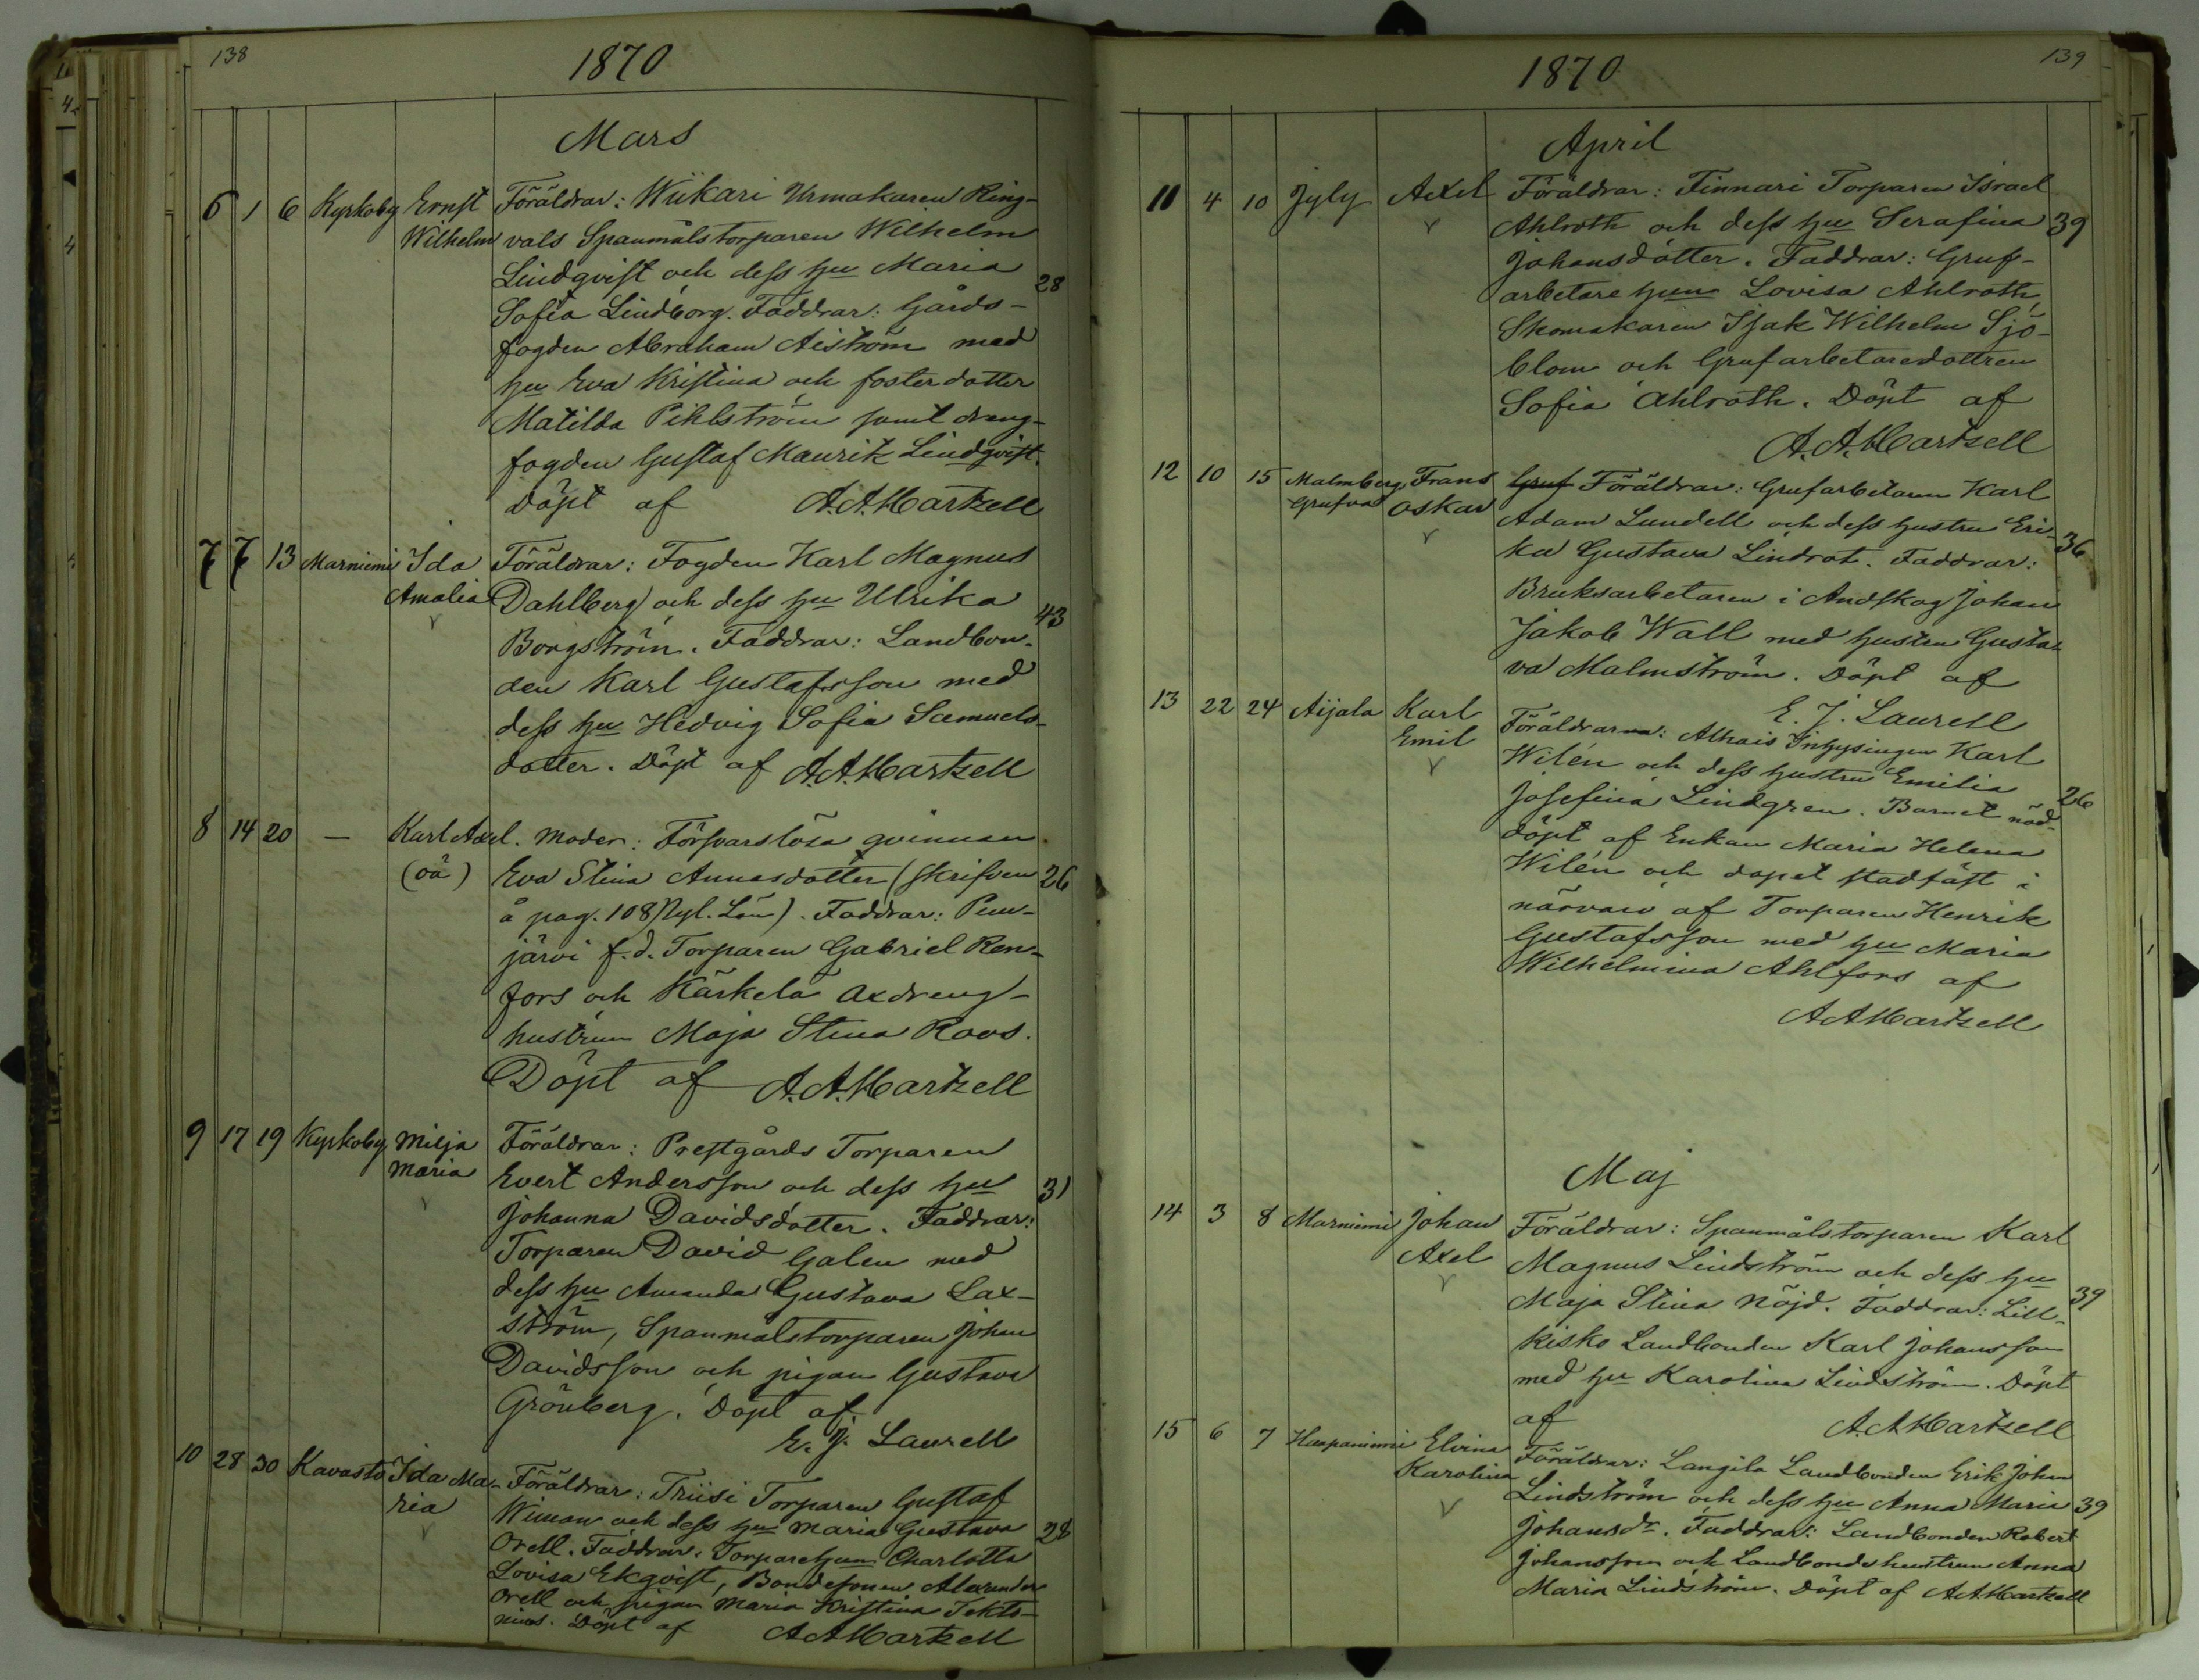 138
1870
Mars
6 1 6 Kyrkoby Ernst Föräldrar: Wiikari Urmakaren Ring-
Wilhelm vals Spanmålstorparen Wilhelm
Lindqvist och dess hu Maria 28
Sofia Lindborg. Faddrar: Gårds-
fogden Abraham Aiström med
hu Eva Kristina och fosterdotter
Matilda Pihlström samt dreng-
fogden Gustaf Maurik Lindqvist.
Döpt af A. A. Hartzell
7 7 13 Marniemi Ida Föräldrar: Fogden Karl Magnus
Amalia Dahlberg och dess hu Ulrika 43
Borgström. Faddrar: Landbon-
den Karl Gustafsson med
dess hu Hedvig Sofia Samuels-
dotter. Döpt af A. A. Hartzell
8 14 20 — Karl Axel. Moder: Försvarslösa qvinnan
(oä) Eva Stina Annasdotter (skrifven 26
å pag. 108 Nyl. Län). Faddrar:
järvi f.d. Torparen Gabriel Ren-
fors och Kärkelä Axdreng-
hustrun Maja Stina Roos.
Döpt af A. A. Hartzell
9 17 19 Kyrkoby Milja Föräldrar: Prestgårds Torparen
Maria Evert Andersson och dess hu 31
Johanna Davidsdotter. Faddrar:
Torparen David Galen med
dess hu Amanda Gustava Lax-
ström, Spanmålstorparen Johan
Davidsson och pigan Gustava
Grönberg. Döpt af
E. J. Laurell
10 28 30 Kavasto Ida Ma- Föräldrar: Triisi Torparen Gustaf
ria Wiman och dess hu Maria Gustava 28
Orell. Faddrar: Torparehun Charlotta
Lovisa Ekqvist, Bondesonen Alexander
Orell och pigan Maria Kristina Tekto-
nius. Döpt af A A Hartzell
139
1870
April
11 4 10 Jyly Axel Föräldrar: Finnari Torparen Israel
Ahlroth och dess hu Serafina 39
Johansdotter. Faddrar: Gruf-
arbetare hun Lovisa Ahlroth,
Skomakaren Isak Wilhelm Sjö-
blom och Grufarbetaredottren
Sofia Ahlroth. Döpt af
A. A. Hartzell
12 10 15 Malmberg Frans Gruf Föräldrar: Grufarbetaren Karl
Grufva Oskar Adam Lundell och dess hustru Eri- 36
ka Gustava Lindrot. Faddrar:
Bruksarbetaren i Andskog Johan
Jakob Wall med hustru Gusta-
va Malmström. Döpt af
E. J. Laurell
13 22 24 Aijala Karl Föräldrarna: Althais Inhysingen Karl
Emil Wilén och dess hustru Emilia
Josefina Lindgren. Barnet nöd- 26
döpt af Enkan Maria Helena
Wilén och dopet stadfäst i
närvaro af Torparen Henrik
Gustafsson med hu Maria
Wilhelmina Ahlfors af
A A Hartzell
Maj
14 3 8 Marniemi Johan Föräldrar: Spanmålstorparen Karl
Axel Magnus Lindström och dess hu
Maja Stina Nöjd. Faddrar: Lill- 39
kisko Landbonden Karl Johansson
med hu Karolina Lindström. Döpt
af A. A Hartzell
15 6 7 Haapaniemi Elvina Föräldrar: Langila Landbonden Erik Johan
Karolina Lindström och dess hu Anna Maria 39
Johansdr. Faddrar: Landbonden Robert
Johansson och Landbondehustrun Anna
Maria Lindström. Döpt af A A. Hartzell